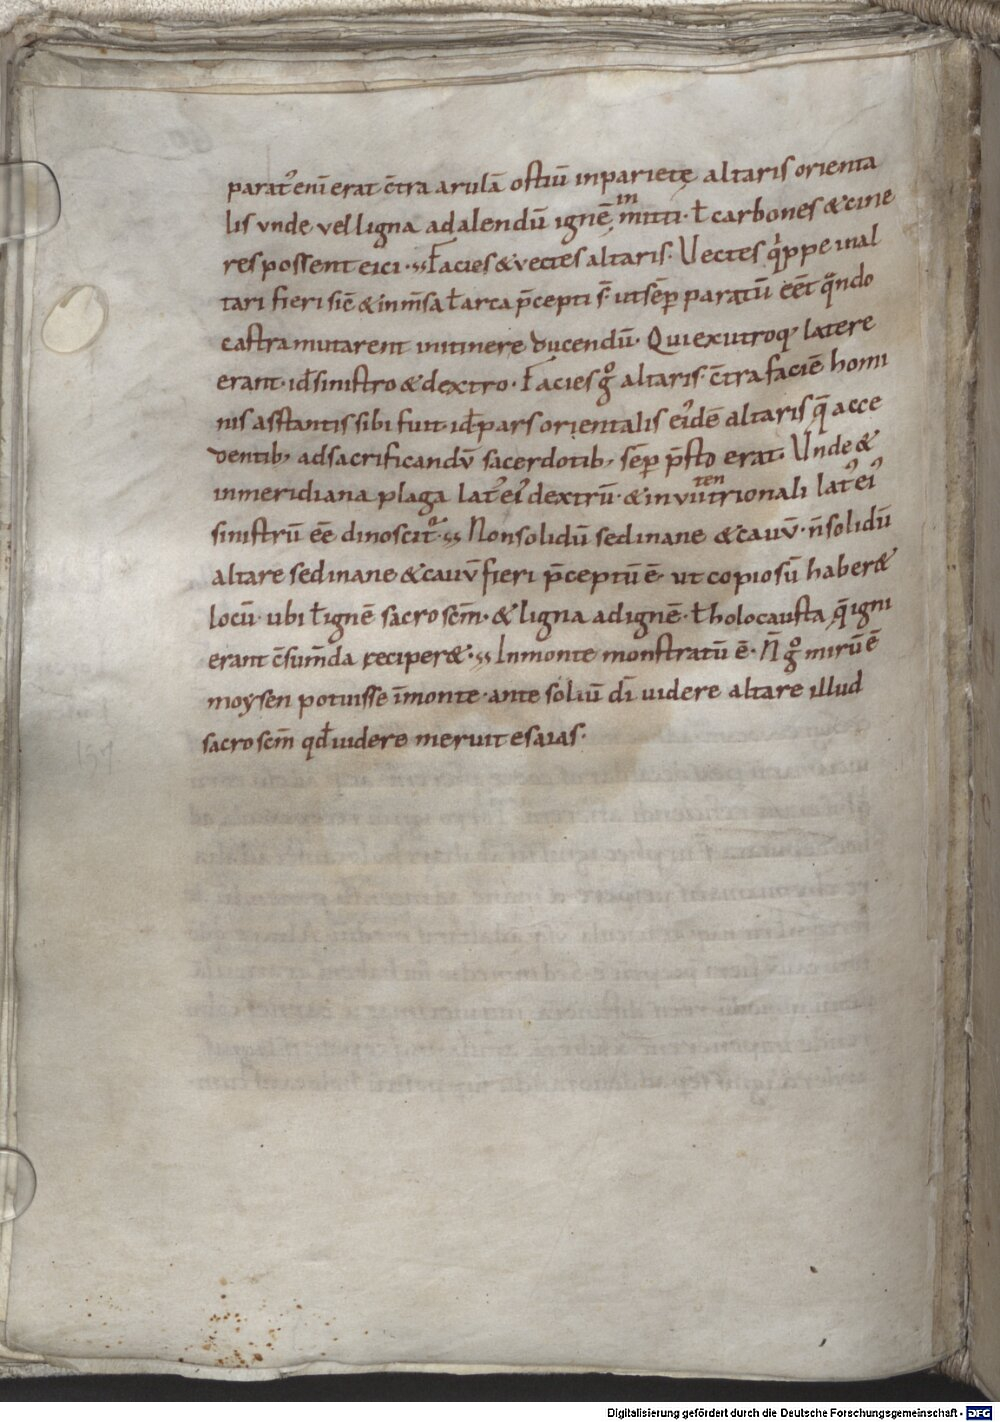 parat᷒ enī erat c̄tra arulā ostiū inparietę altaris orienta
lis vnde vel ligna adalendū ignē inmitti · ł carbones & cine
res possent eici · Facies & vectes altaris · Vectes q̇ppe inal
tari fieri sic̄ & inm̄sa ł arca p̄cepti s̄ · ut sēp paratū eēt q̄ndo
castra mutarent initinere ducendū · Qui exutroq; latere
erant · id ̄ sinistro & dextro · Facies gͦ altaris · c̄tra faciē homi
nis astantis sibi fuit · id ̄ pars orientalis eīdē altaris q̄ acce
dentib; adsacrificandū sacerdotib; sēp p̄sto erat · Vnde &
inmeridiana plaga lat᷒ ei᷒ dextrū · & in viitentrionali lat᷒ ei᷒
sinistrū eē dinoscit᷒ · Non solidū sed inane & cauū · n̄ solidū
altare sed inane & cauū fieri p̄ceptū ē · ut copiosū haber&
locū · ubi ł ignē sacro scm̄ · & ligna adignē · ł holocausta q̄ igni
erant c̄sum̄da reciper& · Inmonte monstratū ē · N̄ gͦ mirū ē
moysen potuisse īmonte · ante soliū dī videre altare illud
sacro scm̄ qd̄ videre meruit esaias ·
Digitalisierung gefördert durch die Deutsche Forschungsgemeinschaft - DFG